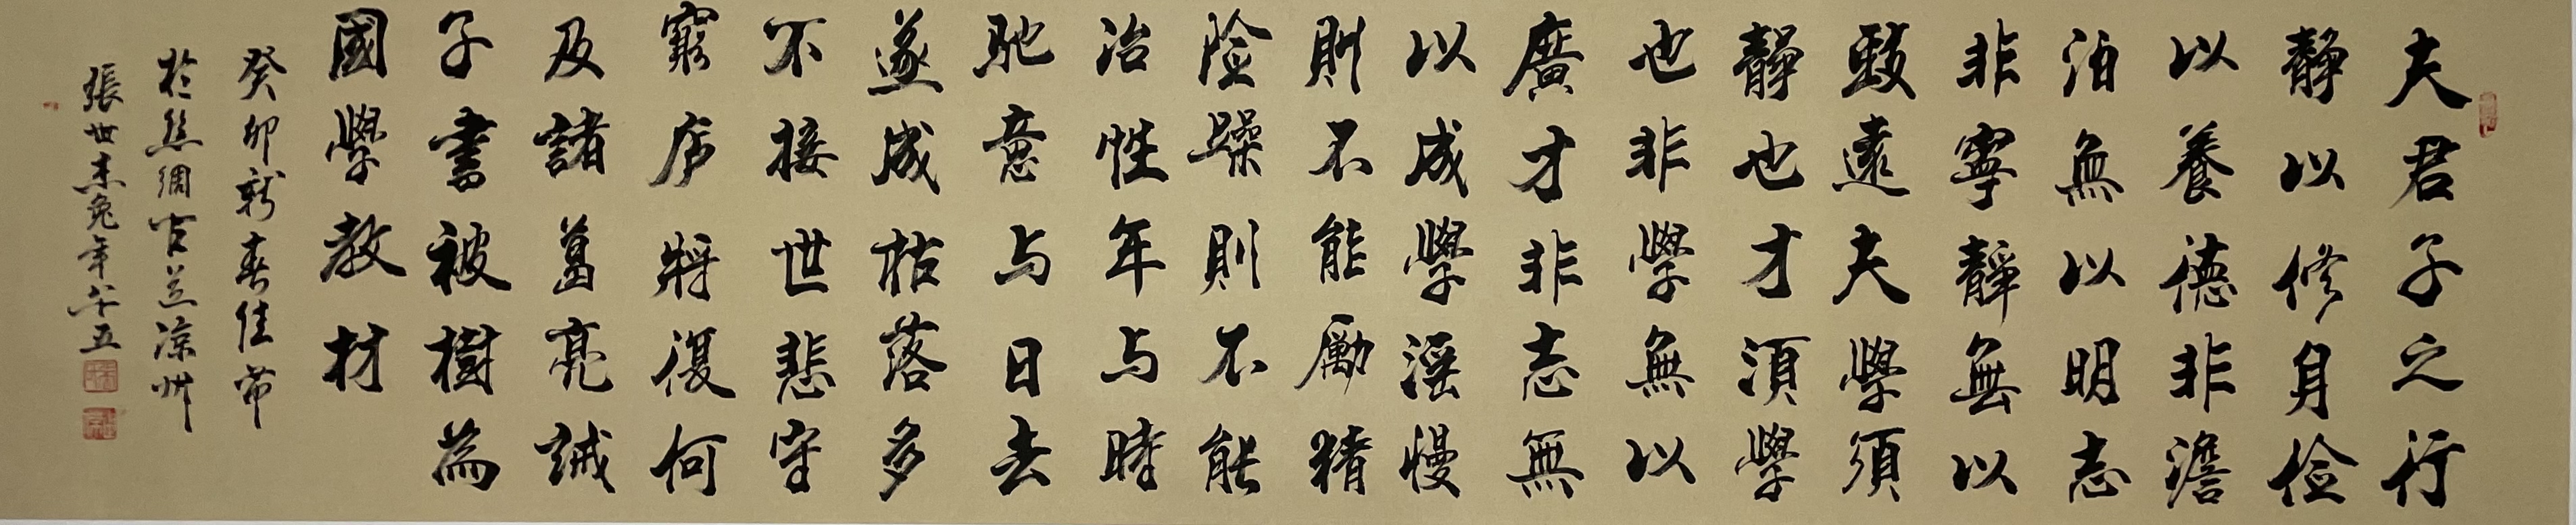 夫君子之行
靜以修身俭
以養德非澹
泊無以明志
非寧靜無以
致遠夫學須
靜也才須學
也非學無以
廣才非志無
以成學淫慢
則不能勵精
险躁則不能
治性年与時
馳意与日去
遂成枯落多
不接世悲守
窮庐將復何
及諸葛亮誡
子書被樹為
國學教材
癸卯新春佳节
於丝绸古道凉州
張世杰兔年八十五